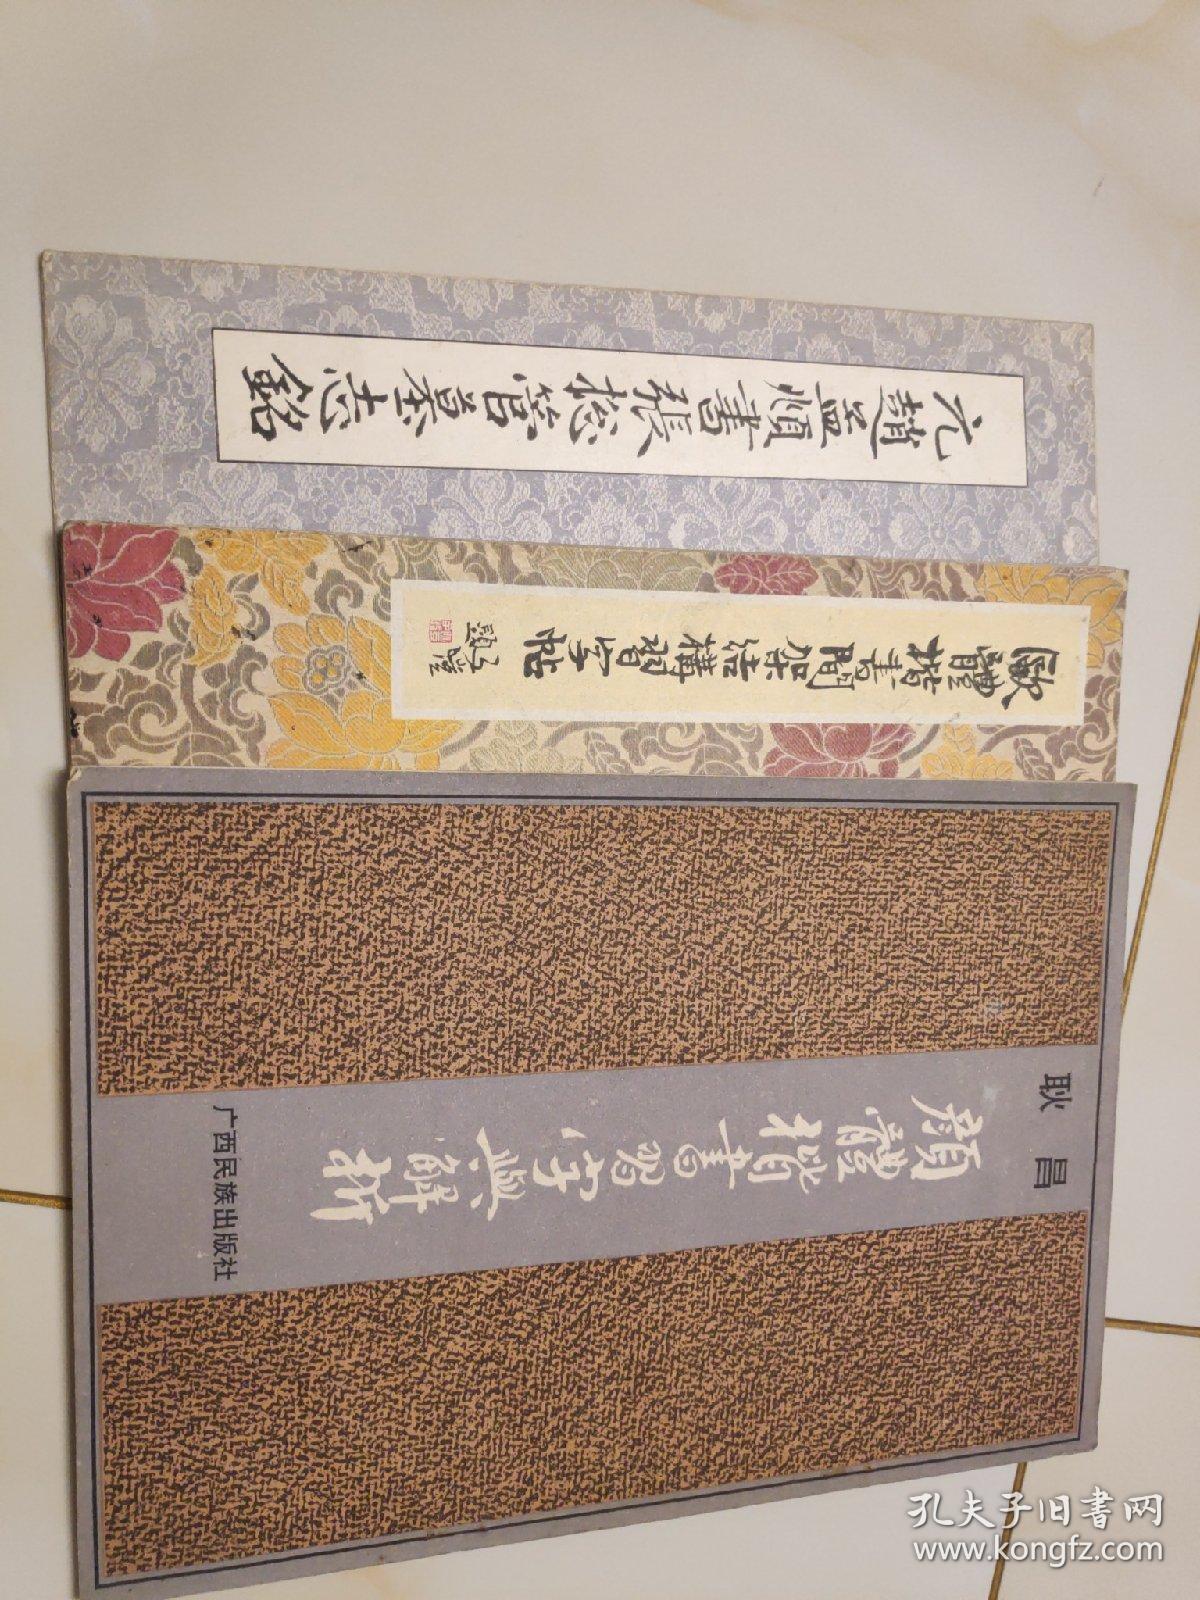 元趙孟頫書張揔管墓志銘
歐體楷書間架結構習字帖
題
耿昌
顏體楷書習字與解析
广西民族出版社
孔夫子旧书网
www.kongfz.com